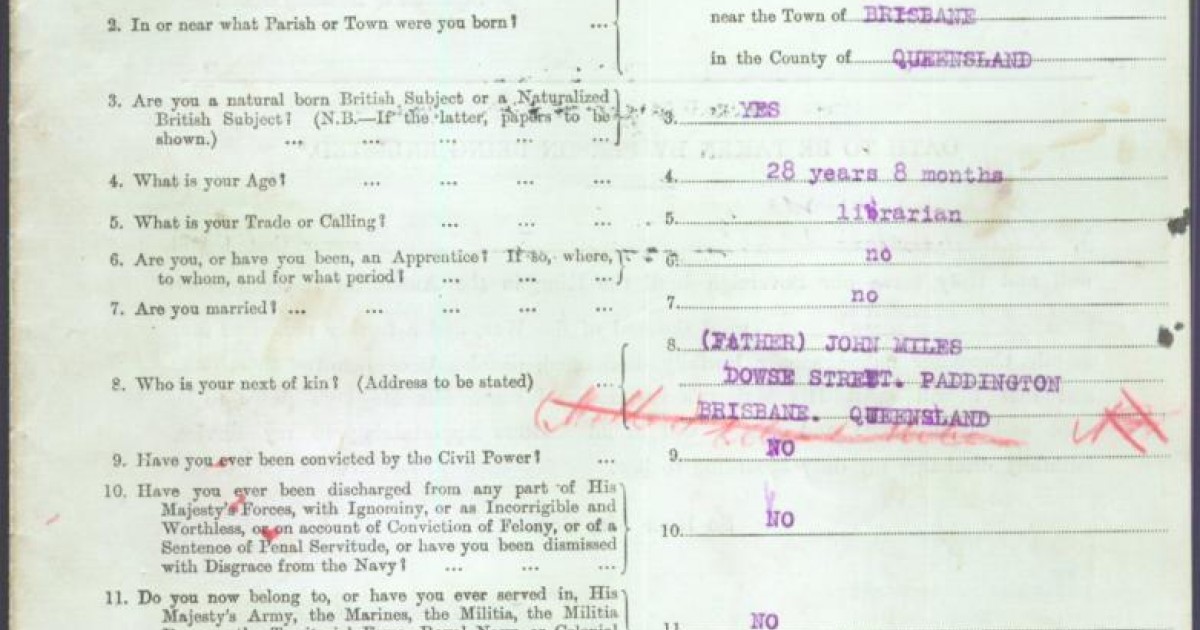 2. In or near what Parish or Town were you born? ...
near the Town of BRISBANE
in the County of QUEENSLAND
3. Are you a natural born British Subject or a Naturalized
British Subject? (N.B.—If the latter, papers to be
shown.) ... ... ... ... ...
3. YES
4. What is your Age? ... ... ... ...
4. 28 years 8 months
5. What is your Trade or Calling? ... ... ...
5. librarian
6. Are you, or have you been, an Apprentice? If so, where,
to whom, and for what period? ... ... ...
6. no
7. Are you married? ... ... ... ... ...
7. no
8. Who is your next of kin? (Address to be stated) ...
8. (FATHER) JOHN MILES
DOWSE STREET. PADDINGTON
BRISBANE. QUEENSLAND
9. Have you ever been convicted by the Civil Power? ...
9. NO
10. Have you ever been discharged from any part of His
Majesty's Forces, with Ignominy, or as Incorrigible and
Worthless, or on account of Conviction of Felony, or of a
Sentence of Penal Servitude, or have you been dismissed
with Disgrace from the Navy? ... ... ...
10. NO
11. Do you now belong to, or have you ever served in, His
Majesty's Army, the Marines, the Militia, the Militia
11. NO